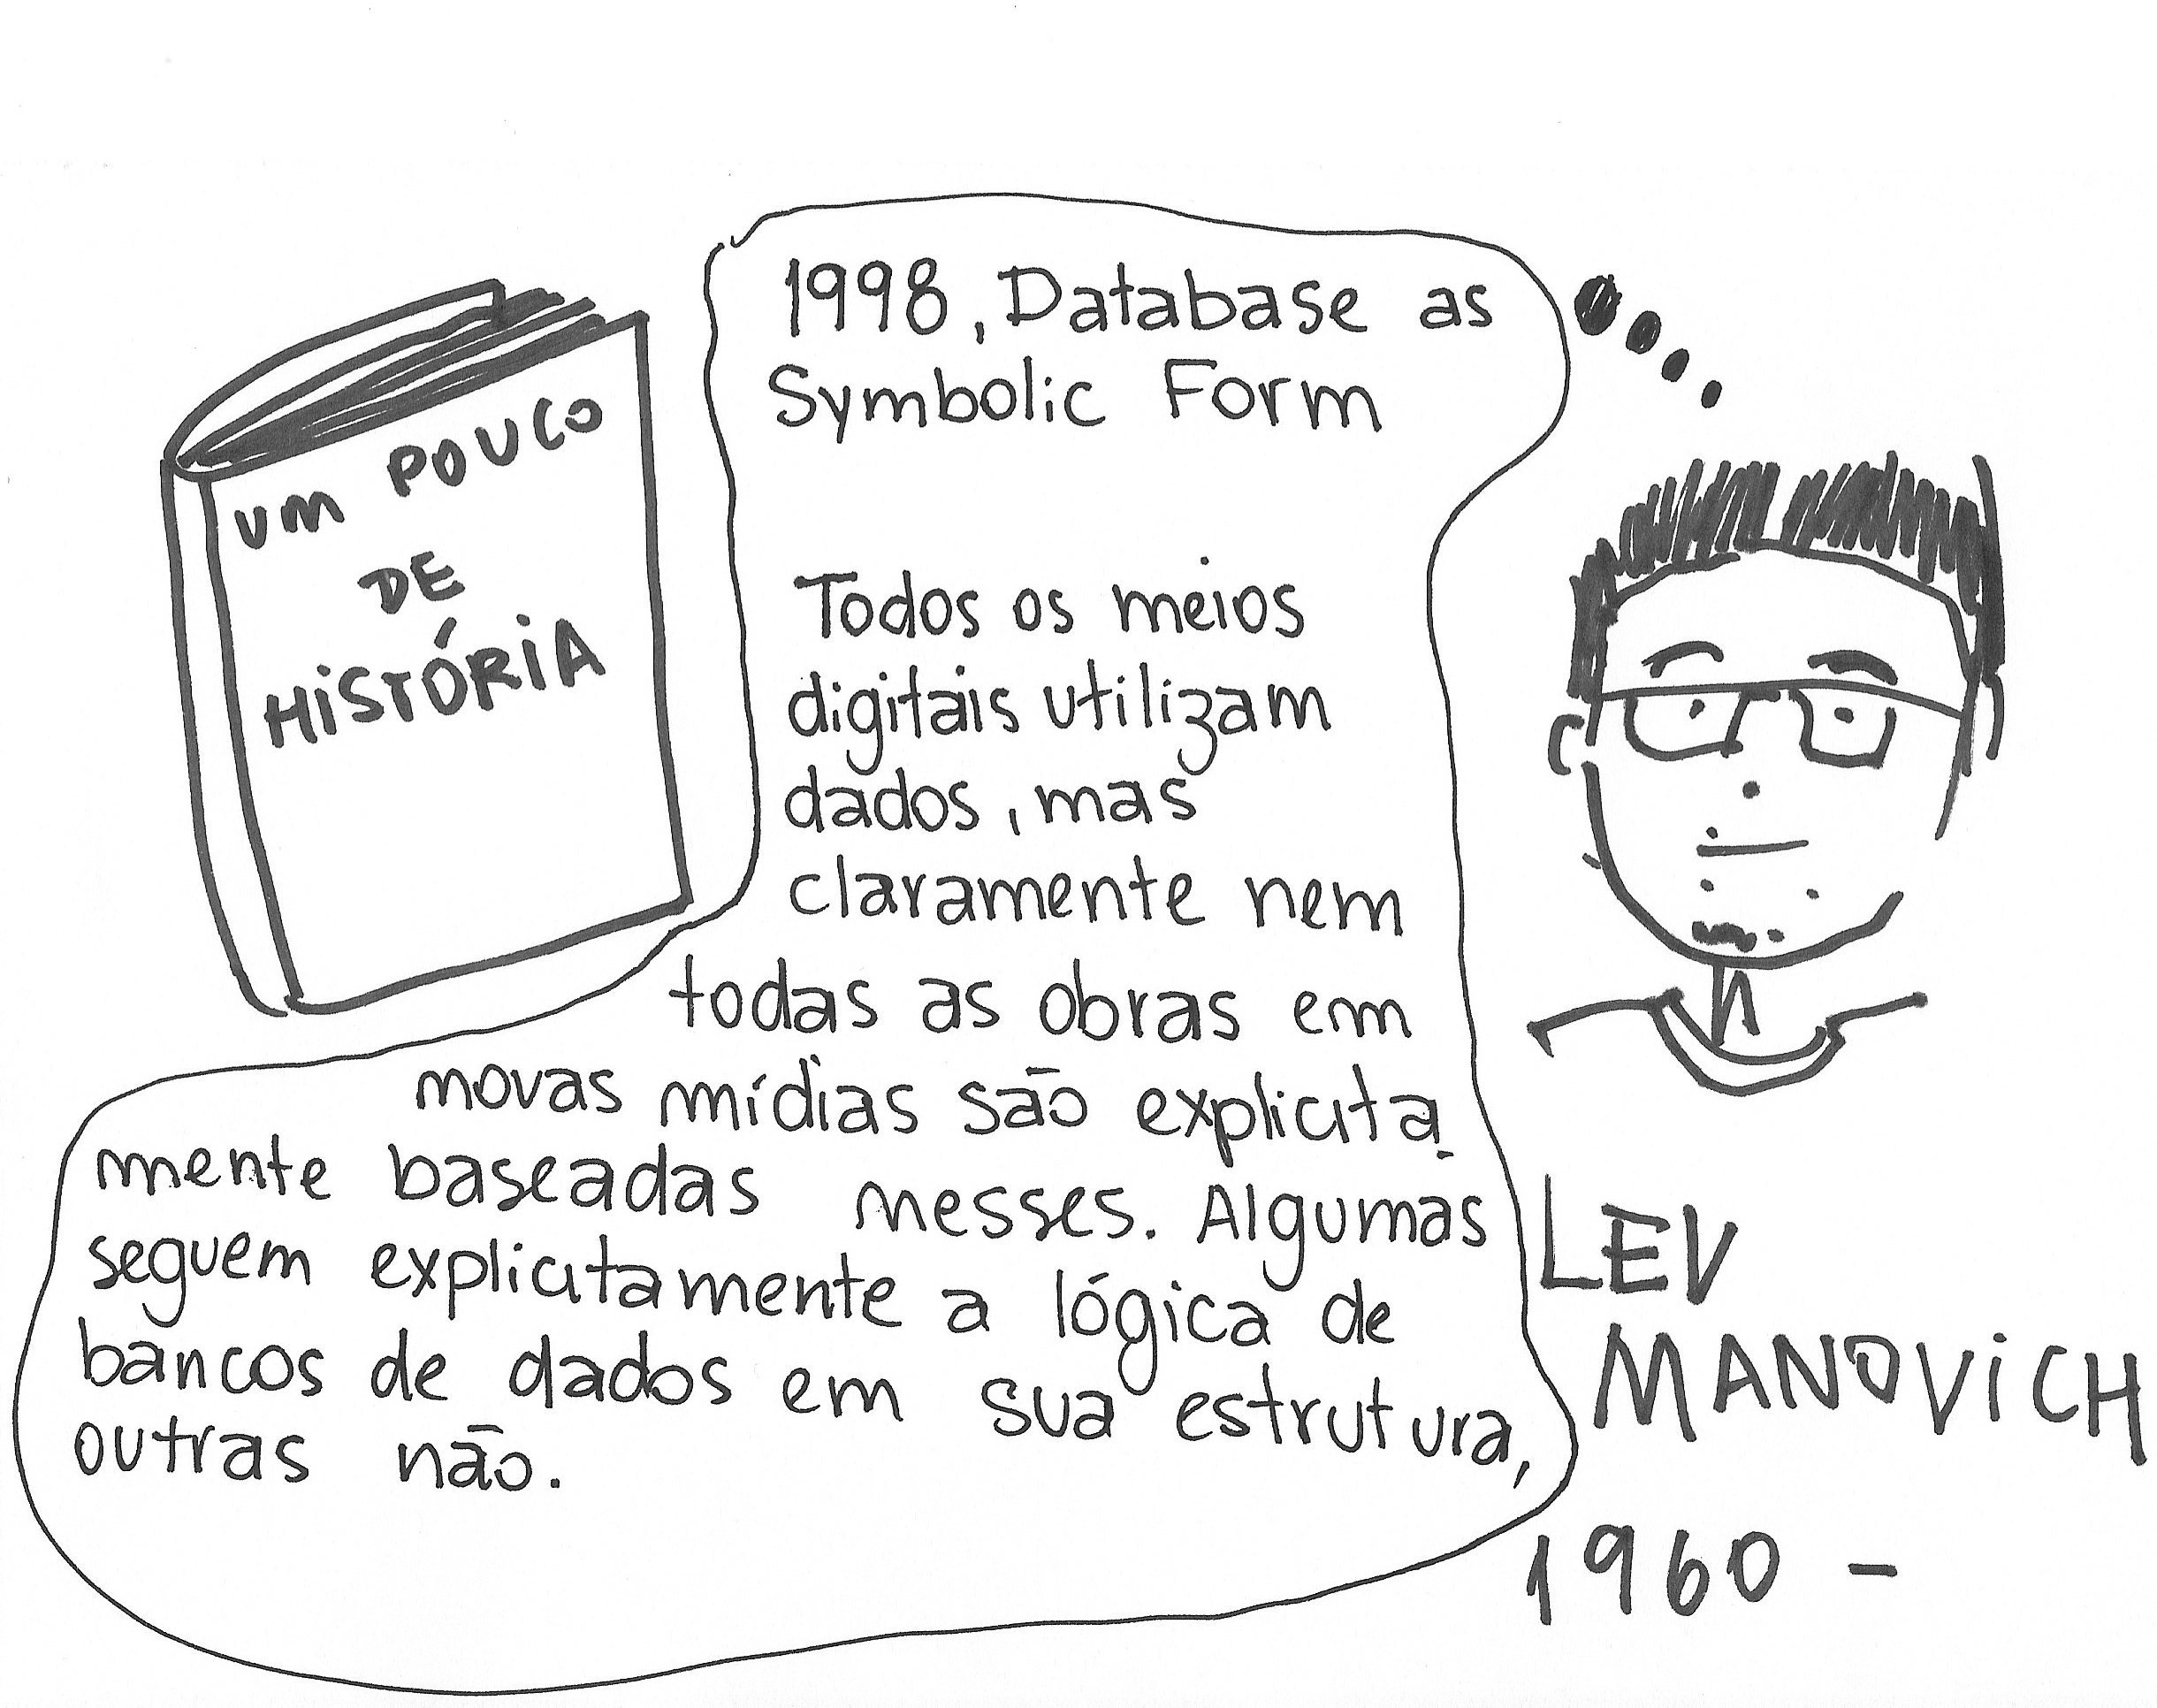 UM POUCO
DE
HISTÓRIA
1998, Database as
Symbolic Form
Todos os meios
digitais utilizam
dados, mas
claramente nem
todas as obras em
novas mídias são explicita
mente baseadas nesses. Algumas
seguem explicitamente a lógica de
bancos de dados em sua estrutura,
outras não.
LEV
MANOVICH
1960 -